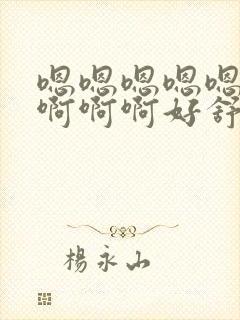 嗯嗯嗯嗯嗯
啊啊啊好舒
楊永山